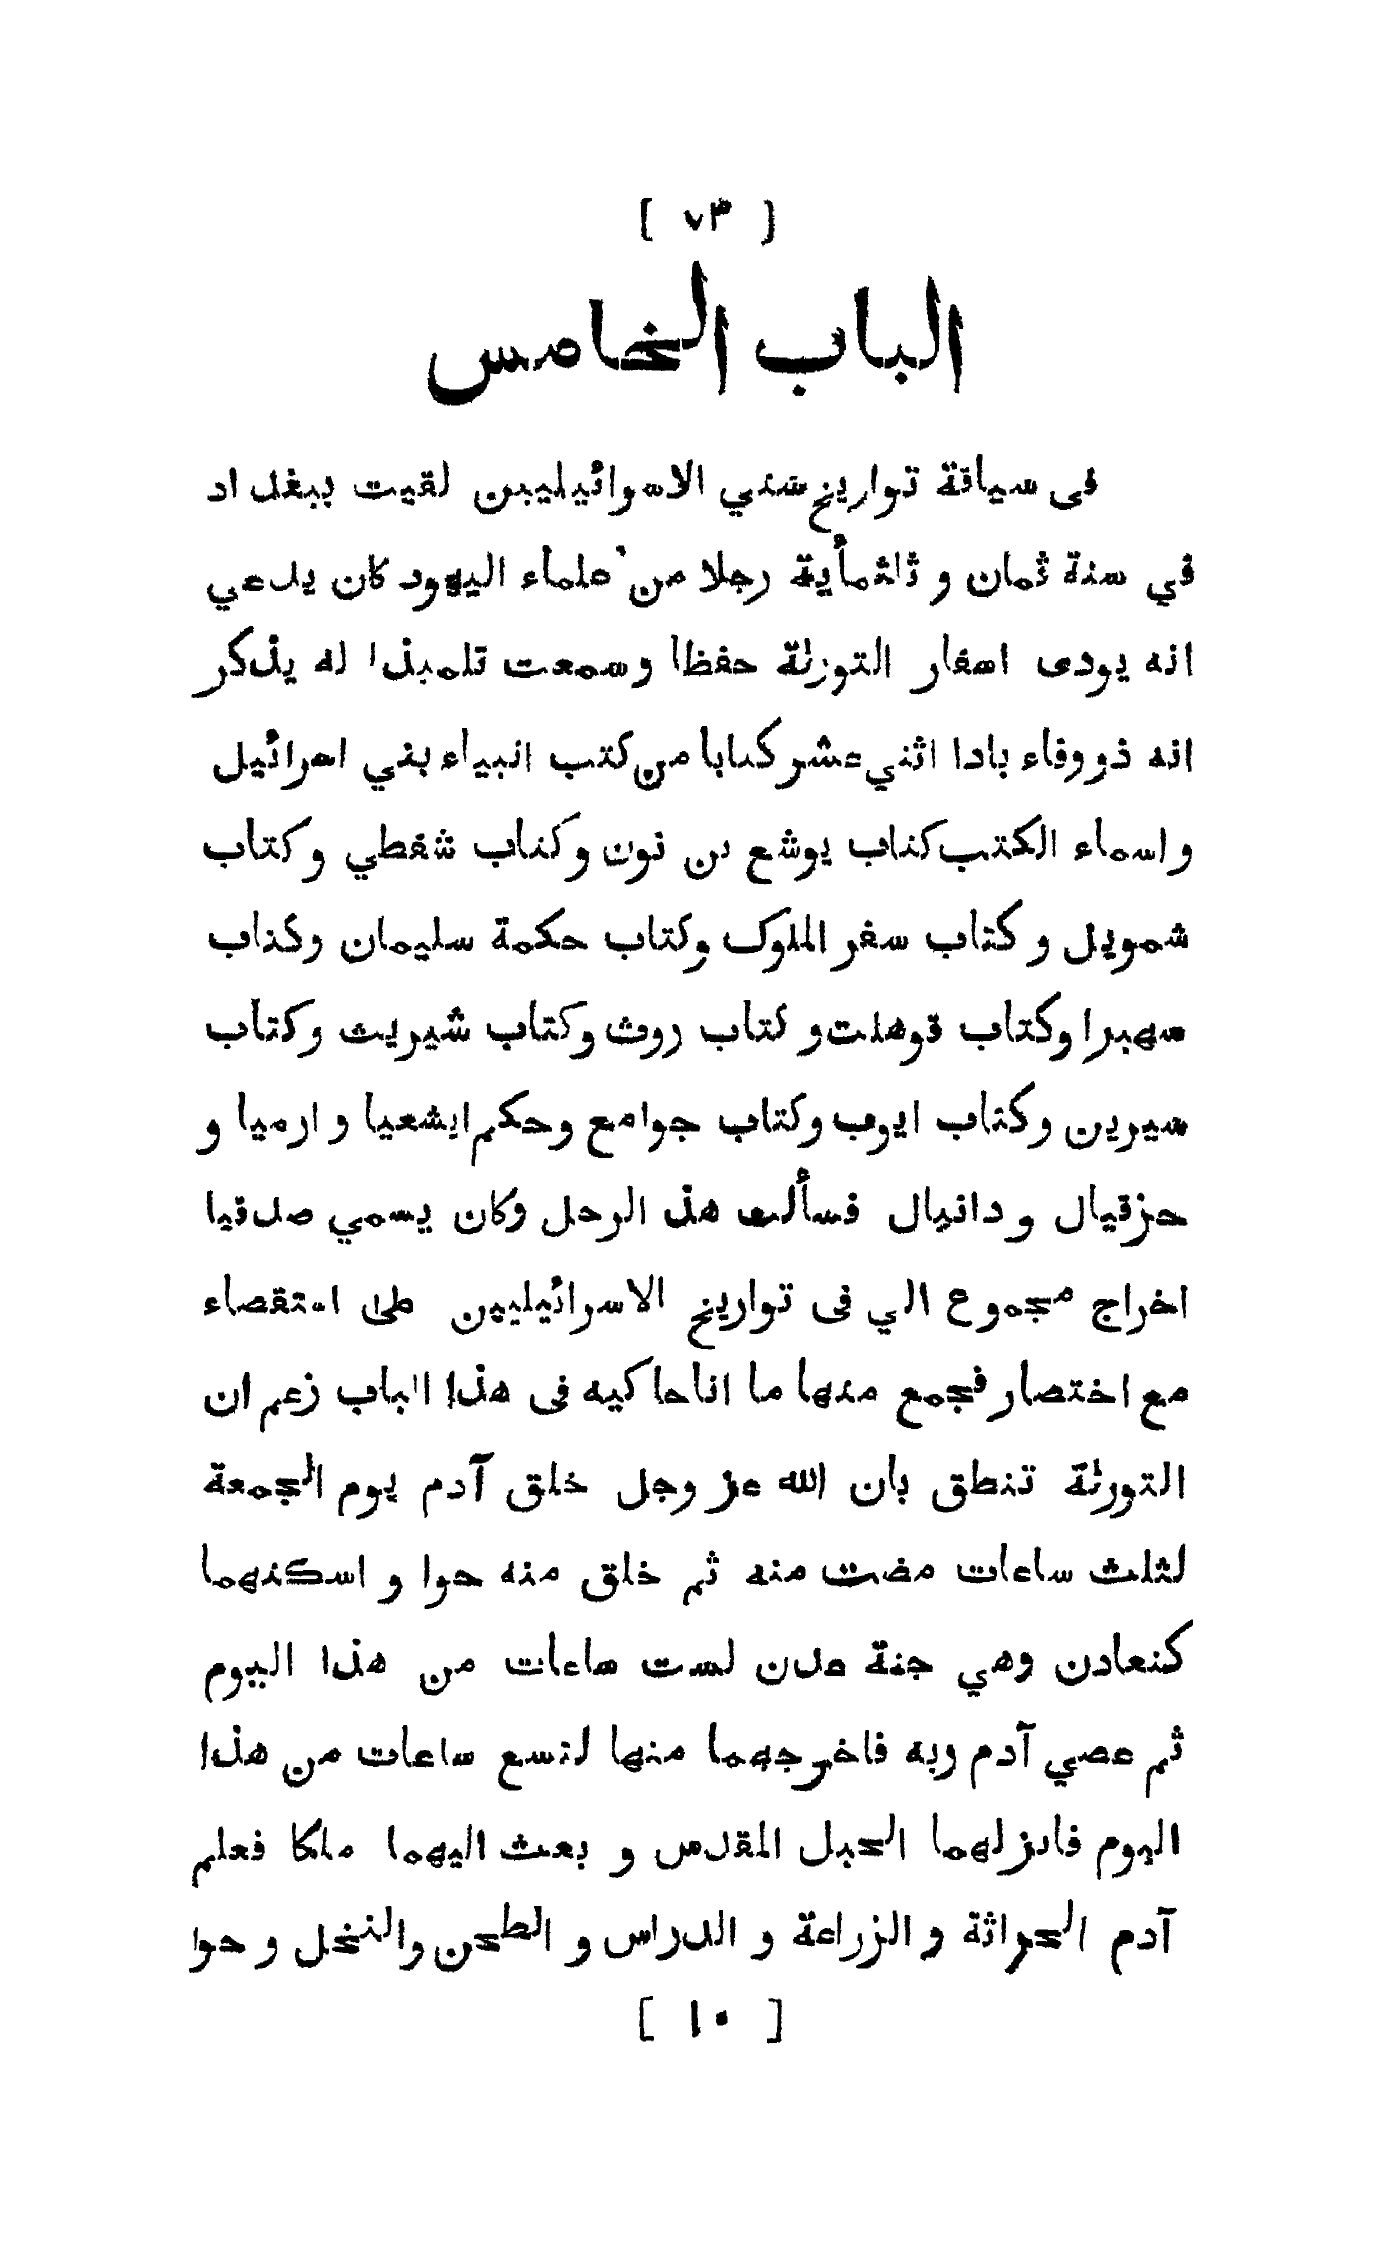 [ ٧٣ ]
الباب الخامس
فى سياقة تواريخ سني الاسرائيليين لقيت ببغداد
في سنة ثمان و ثلثمأية رجلا من علماء اليهود كان يدعي
انه يودى اسفار التورٰة حفظا وسمعت تلميذا له يذكر
انه ذووفاء بادا اثني عشر كتابا من كتب انبياء بني اسرائيل
و اسماء الكتب كتاب يوشع بن نون وكتاب شفطي وكتاب
شمويل وكتاب سفر الملوك وكتاب حكمة سليمان وكتاب
سهبرا وكتاب قوهلت و كتاب روث وكتاب شيريث وكتاب
سيرين وكتاب ايوب وكتاب جوامع وحكم ايشعيا و ارميا و
حزقيال و دانيال فسألت هذ الرجل وكان يسمي صدقيا
اخراج مجموع الي فى تواريخ الاسرائيليين على استقصاء
مع اختصار فجمع منها ما اناحاكيه فى هذا الباب زعم ان
التورٰة تنطق بان الله عز وجل خلق آدم يوم الجمعة
لثلث ساعات مضت منه ثم خلق منه حوا و اسكنهما
كنعادن وهي جنة عدن لست ساعات من هذا اليوم
ثم عصي آدم ربه فاخرجهما منها لتسع ساعات من هذا
اليوم فانزلهما الجبل المقدس و بعث اليهما ملكا فعلم
آدم الحراثة و الزراعة و الدراس و الطحن والنخل و حوا
[ ١٠ ]